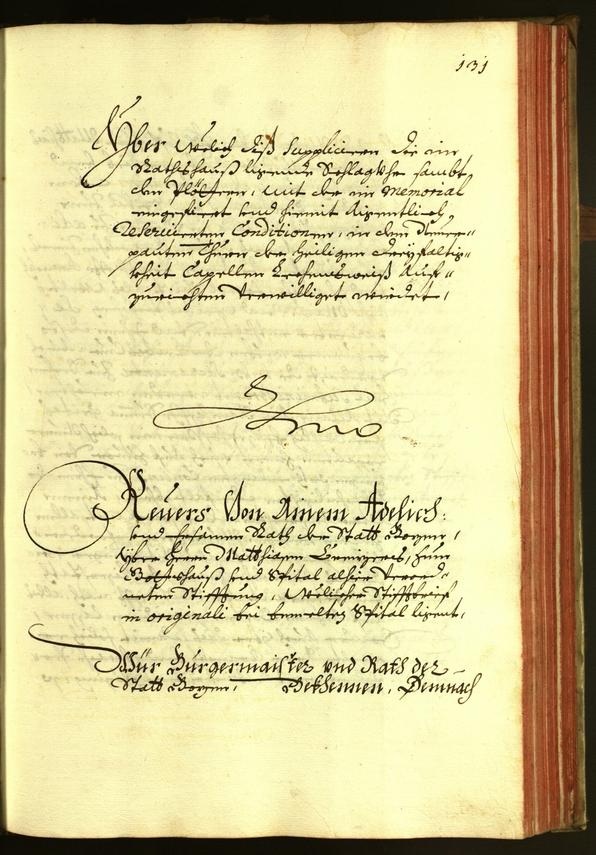 131
Yber welich diß Suppliciren die im
Rathshauß ligende Schlaguhr sambt
den Plöchern, mit der im Memorial
eingefiert und hiemit aigentlich
Reserviereten Conditionen, in dem
pauten Thurn der heiligen Dreyfaltig-
kheit Capellen Lechensweiß Auf-
zurichten verwilliget wirdet,
Revers Von Ainem Adelich:
und Ersamen Rath der Statt Bozen,
yber Herrn Matthiasen zum
Gottshauß und Spital alhie verord-
neten Stifftung, welicher Stifftbrief
in originali bei bemelten Spital ligent,
Wür Burgermaister und Rath der
Statt Bozen, Bekhennen, Demnach